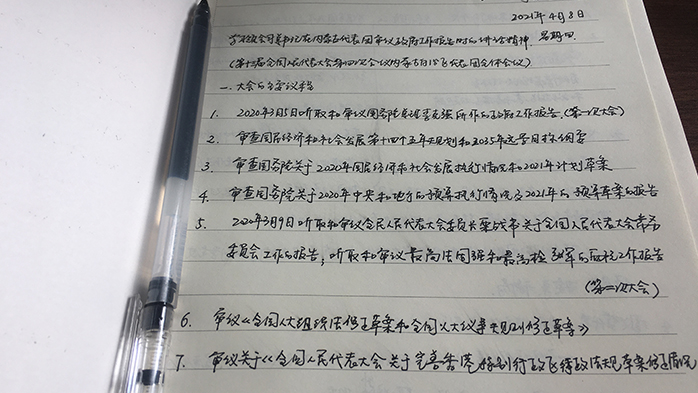 2021年4月8日
学习总书记在内蒙古代表团审议政府工作报告时的讲话精神. 星期四.
(第十三届全国人民代表大会第四次会议内蒙古代表团全体会议)
一. 大会的各审议稿
1. 2020年3月5日听取和审议国务院总理李克强所作的政府工作报告.(第一次大会)
2. 审查国民经济和社会发展第十四个五年规划和2035年远景目标纲要
3. 审查国务院关于2020年国民经济和社会发展执行情况和2021年计划草案
4. 审查国务院关于2020年中央和地方的预算执行情况及2021年的预算草案的报告
5. 2020年3月9日听取和审议全民人民代表大会委员长栗战书关于全国人民代表大会常务
委员会工作的报告; 听取和审议最高法周强和最高检张军的两院工作报告
(第二次大会)
6. 审议《全国人大组织法修正草案和全国人大议事规则修正草案》
7. 审议关于《全国人民代表大会关于完善香港特别行政区